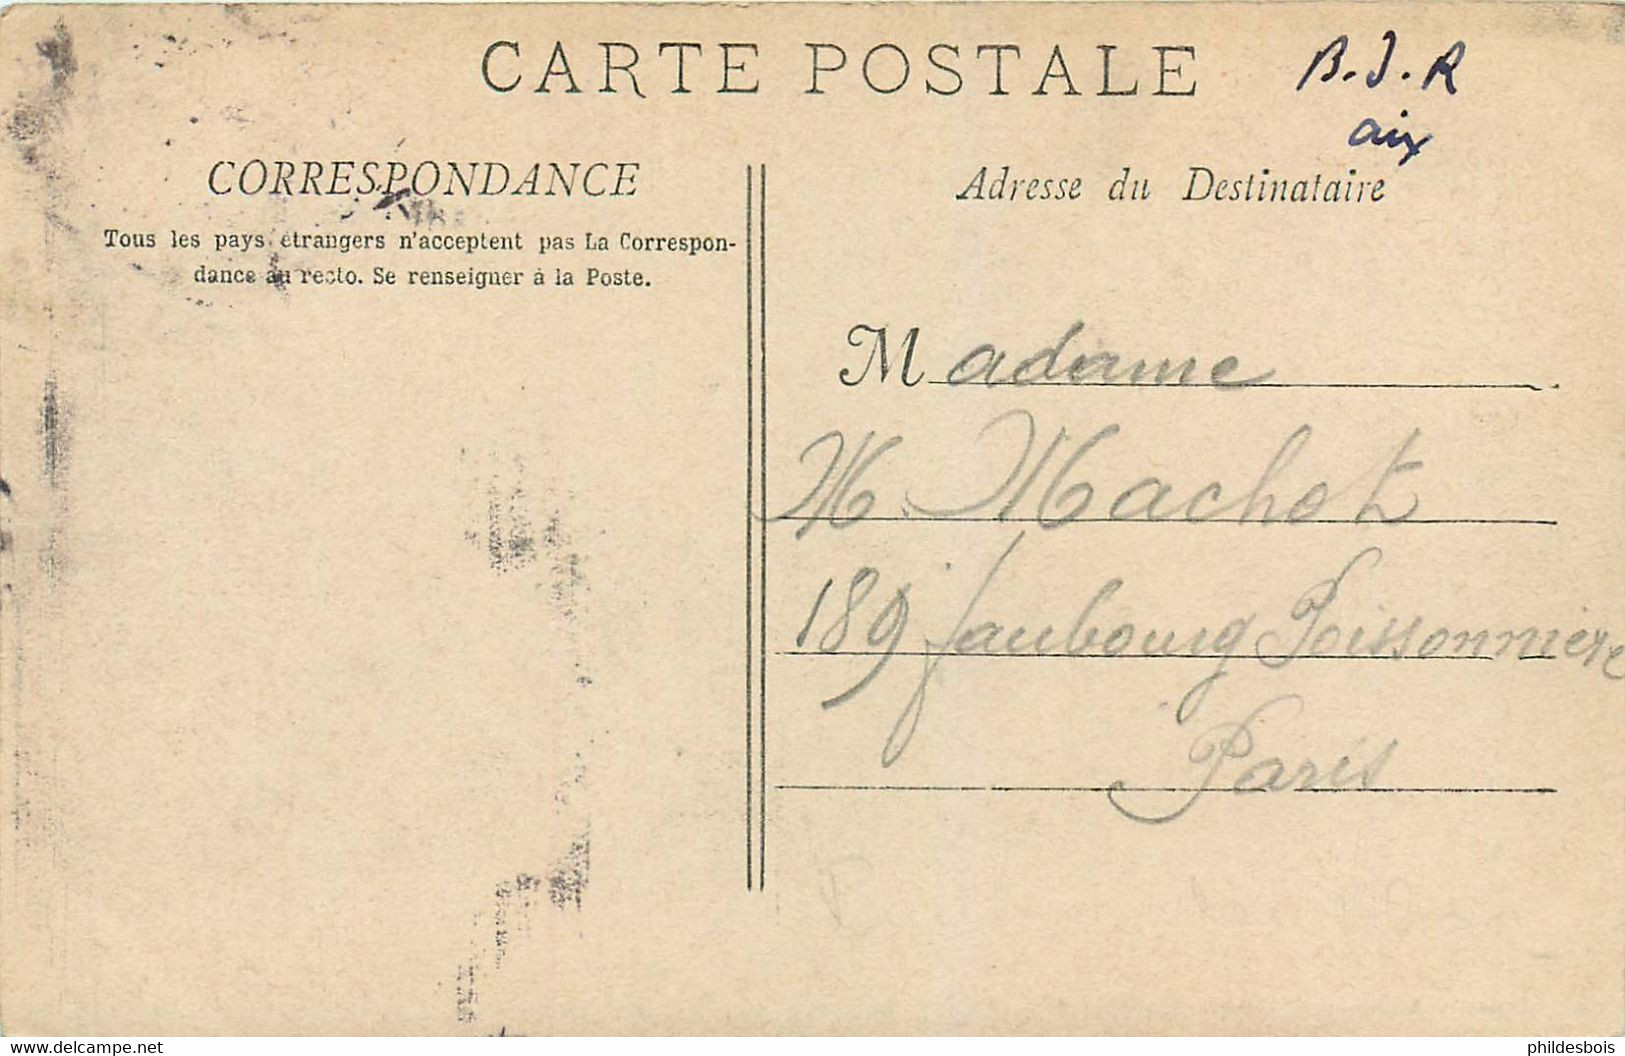 CARTE POSTALE
B.J.R
aix
CORRESPONDANCE
Tous les pays étrangers n'acceptent pas La Correspon-
dance au recto. Se renseigner à la Poste.
Adresse du Destinataire
Madame
M. Machot
189 faubourg Poissonniere
Paris
https://www.delcampe.net
phildesbois